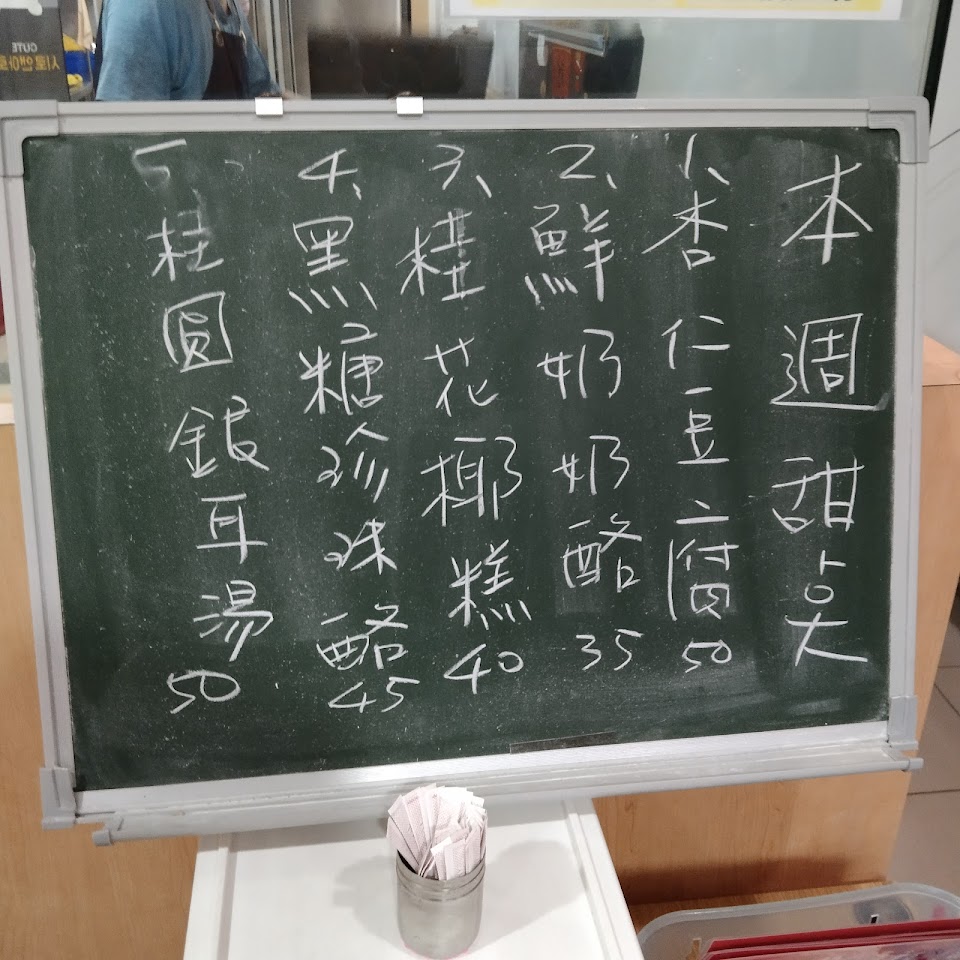 本週甜点
1、杏仁豆腐50
2、鮮奶奶酪35
3、桂花椰糕40
4、黑糖珍珠酪45
5、桂圓銀耳湯50
CUTE